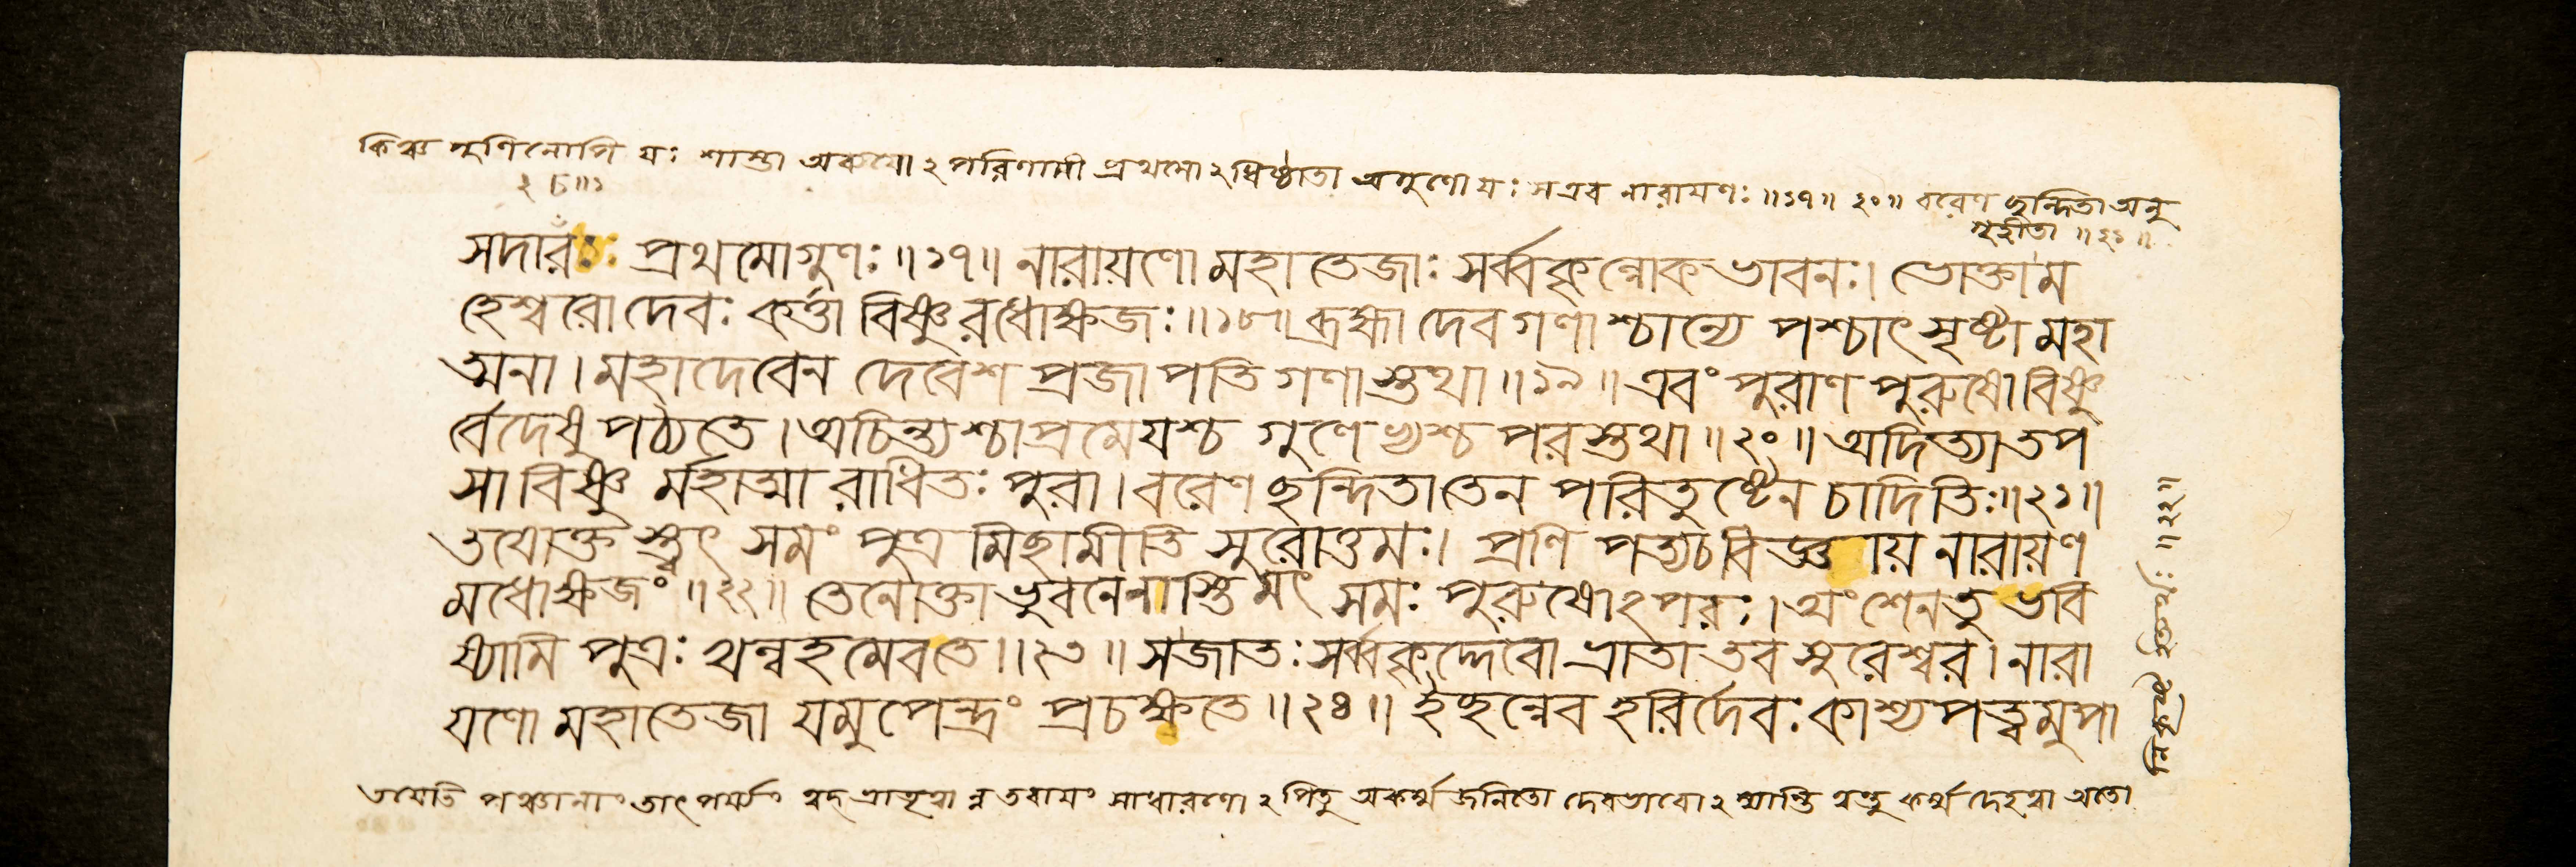 কিঞ্চ গুণিনোপি যঃ শাস্তা অব্যয়ো২পরিণামী প্রথমো২ধিষ্ঠাতা অগুণো যঃ স এব নারায়ণঃ ॥১৭॥ ২০॥ বরেণ ছন্দিতা অনু
গৃহীতা ॥২১॥
সদার প্রথমোগুণঃ॥১৭॥ নারায়ণো মহাতেজাঃ সর্ব্বকৃল্লোকভাবনঃ। ভোক্তাম
হেশ্বরো দেবঃ কর্ত্তা বিষ্ণুরধোক্ষজঃ॥১৮॥ ব্রহ্মা দেবগণাশ্চান্যে পশ্চাৎসৃষ্টা মহা
ত্মনা। মহাদেবেন দেবেশ প্রজাপতিগণাস্তথা॥১৯॥ এবং পুরাণপুরুষো বিষ্ণু
র্বেদেষু পঠ্যতে। অচিন্ত্যশ্চাপ্রমেয়শ্চ গুণেভ্যশ্চ পরস্তথা॥২০॥ অদিত্যাতপ
সা বিষ্ণু র্মহাত্মারাধিতঃ পুরা। বরেণ ছন্দিতাতেন পরিতুষ্টেন চাদিতিঃ॥২১॥
তযোক্ত স্ত্বৎ সমং পুত্র মিছামীতি সুরোত্তমঃ। প্রণিপত্যচবিজ্ঞায় নারায়ণ
মধোক্ষজং॥২২॥ তেনোক্তা ভুবনেনাস্তি মৎ সমঃ পুরুষো২পরঃ। অংশেনতু ভবি
ষ্যামি পুত্রঃ খল্বহমেবতে॥২৩॥ সজাতঃ সর্ব্বকৃদ্দেবো ভ্রাতা তব সুরেশ্বর। নারা
য়ণো মহাতেজা যমুপেন্দ্রং প্রচক্ষতে॥২৪॥ ইছন্নেব হরির্দেবঃ কাশ্যপত্বমুপা
তযেতি পঞ্চানাং তাৎপর্য্যং সাধারণো২পিতু অকর্ম্ম জনিতো দেবভাবো২
॥২২॥